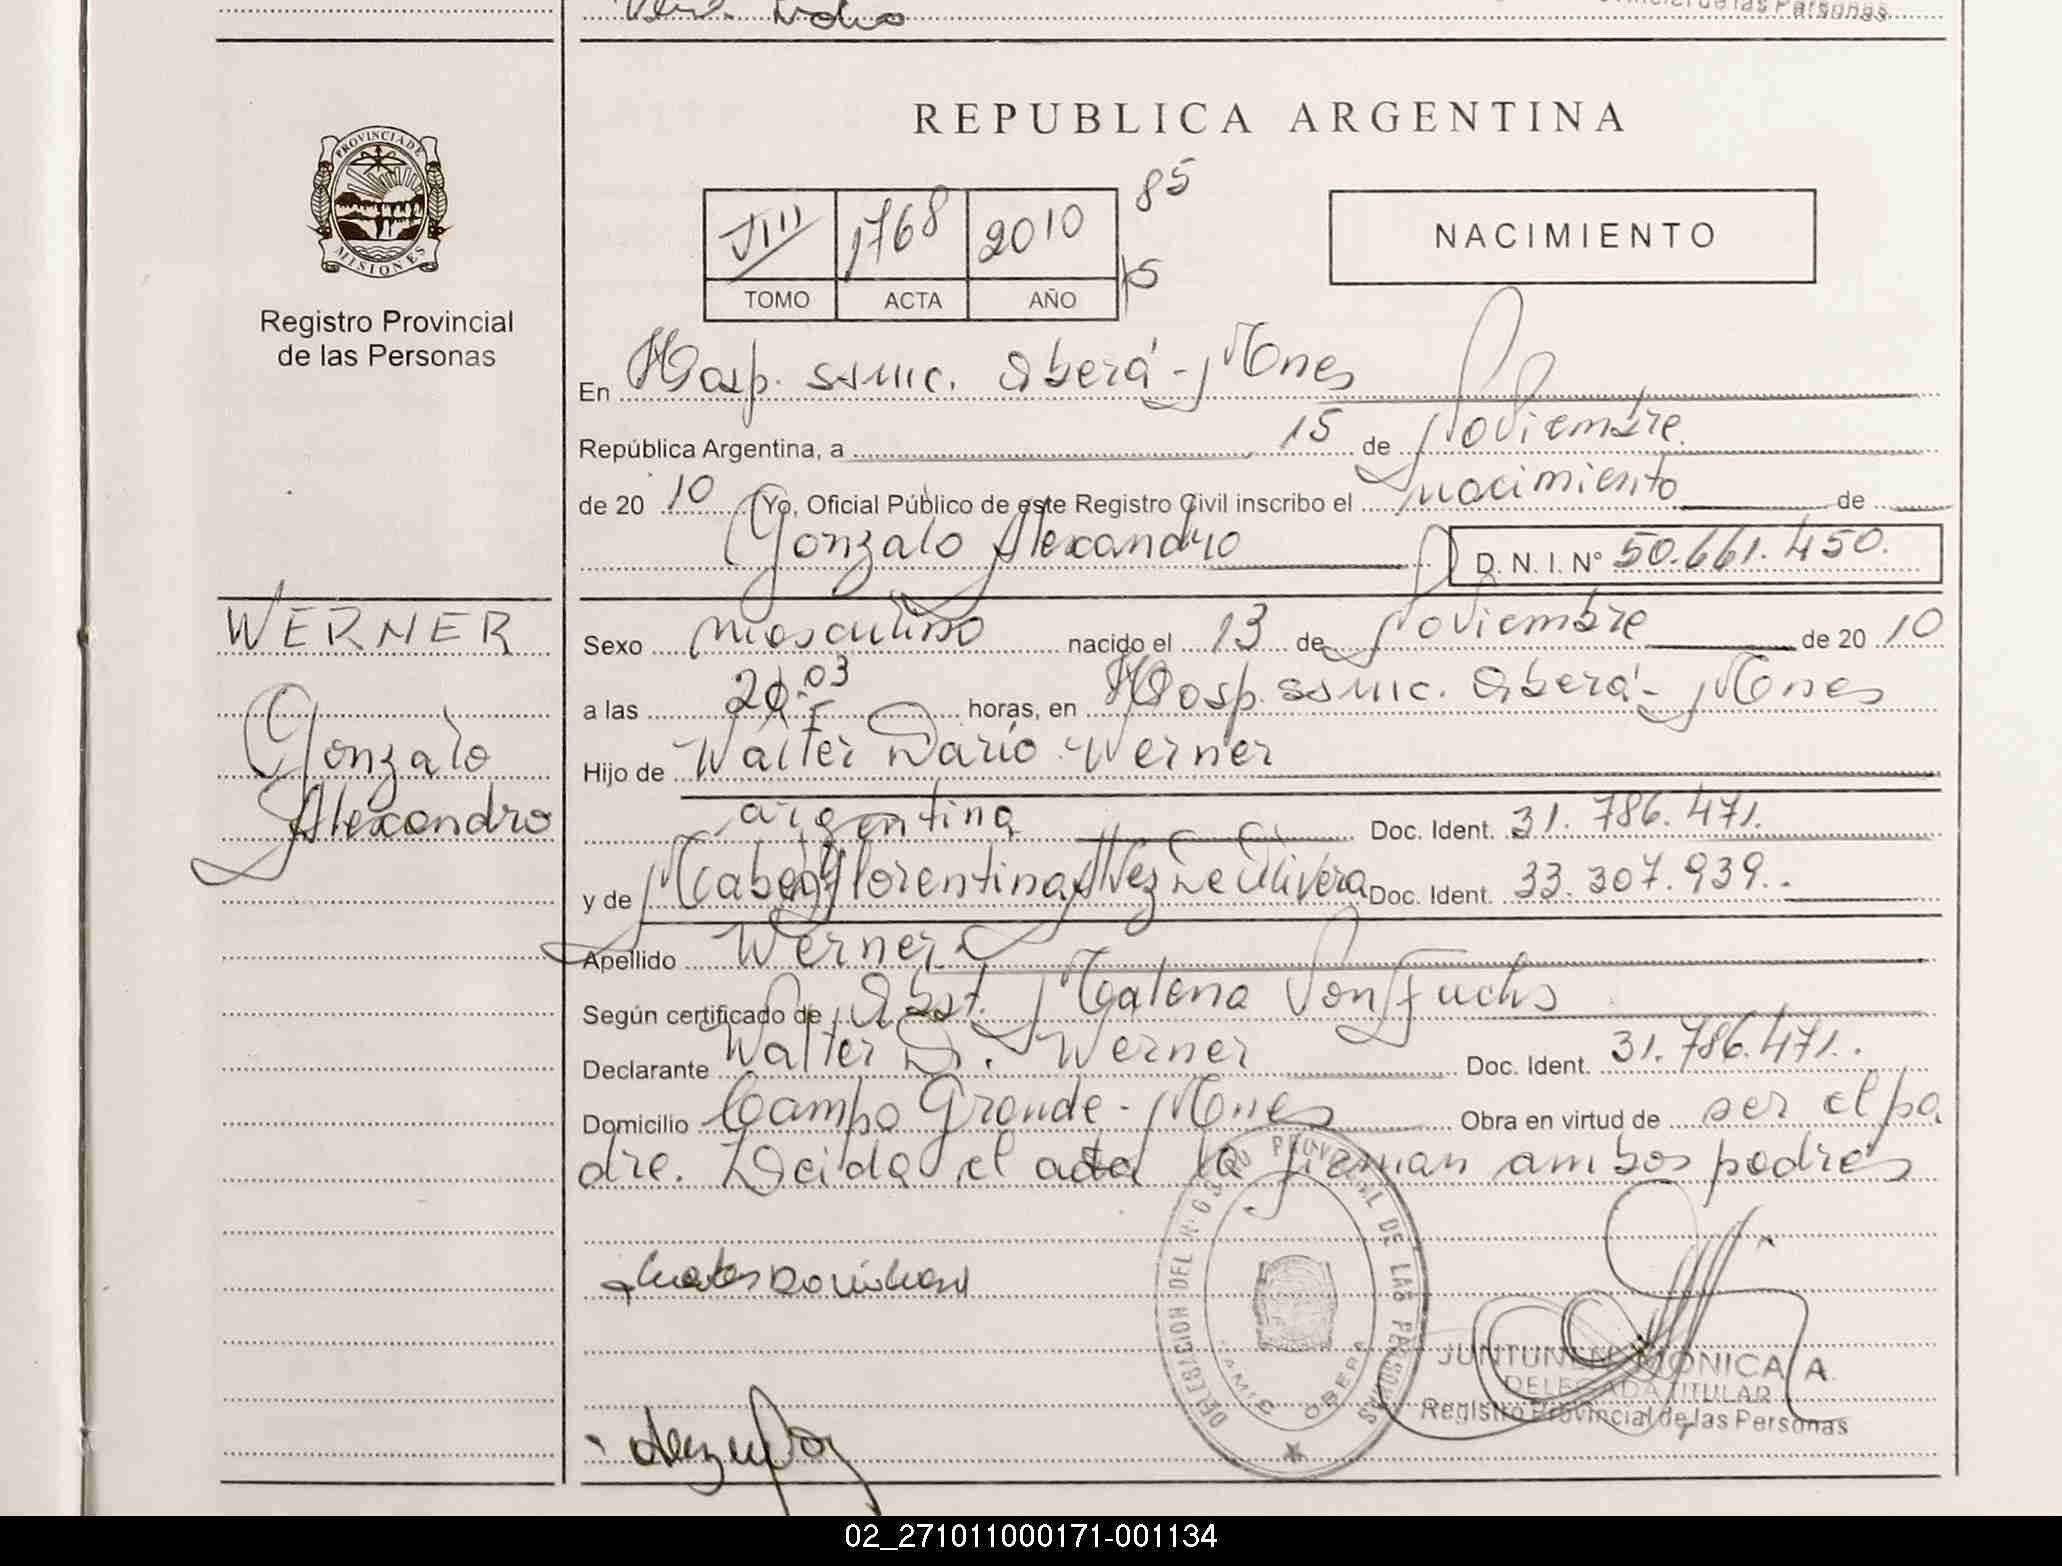 REPUBLICA ARGENTINA
PROVINCIA DE MISIONES
Registro Provincial
de las Personas
VIII 1768 2010 85
TOMO ACTA AÑO
15
NACIMIENTO
En Hosp. ssmic. Oberá - Mnes
República Argentina, a 15 de Noviembre
de 20 10 Yo, Oficial Público de este Registro Civil inscribo el nacimiento de
Gonzalo Alexandro D. N. I. Nº 50.661.450.
WERNER
Gonzalo
Alexandro
Sexo masculino nacido el 13 de Noviembre de 20 10
a las horas, en Hosp. ssmic. Oberá - Mnes
Hijo de Walter Dario Werner
argentina Doc. Ident. 31.786.471.
y de Florentina Alvez De Olivera Doc. Ident. 33.307.939.
Apellido Werner
Según certificado de Obst. Malena Von Fuchs
Declarante Walter D. Werner Doc. Ident. 31.786.471.
Domicilio Campo Grande - Mnes Obra en virtud de ser el pa
dre. Leida el acta la firman ambos padres
DELEGACION DEL REGISTRO PROVINCIAL DE LAS PERSONAS
SAMIC OBERA
JUNTUNEN MONICA A.
DELEGADA TITULAR
Registro Provincial de las Personas
02_271011000171-001134